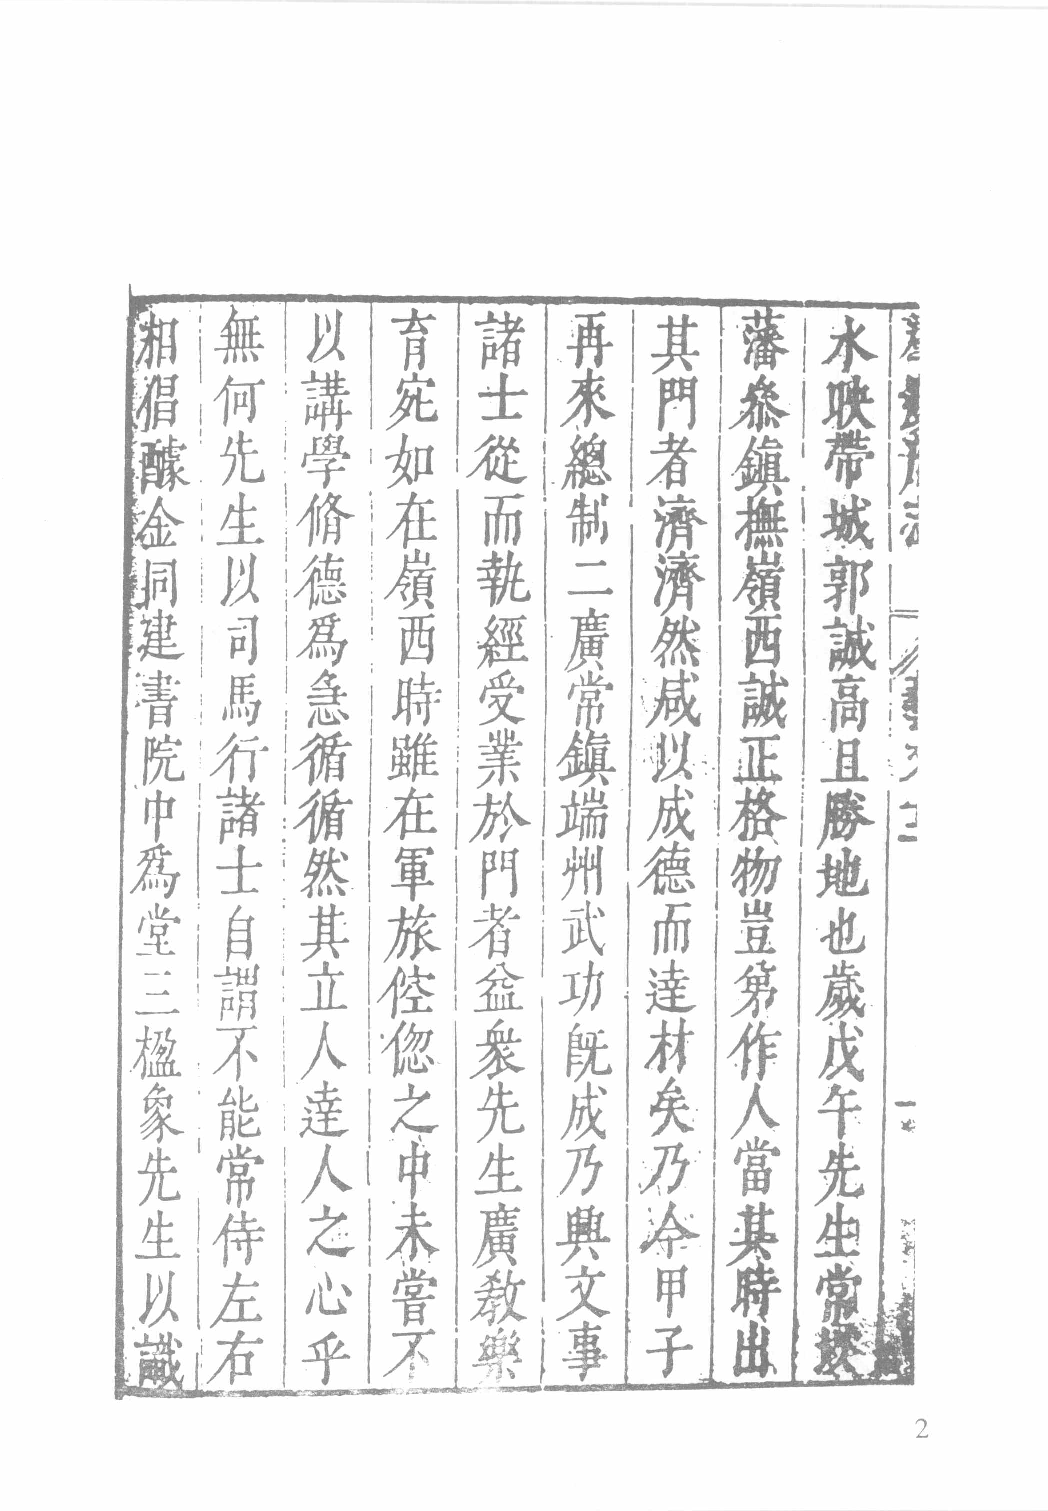 水映帶城郭誠高且勝地也歲戊午先生常
藩叅鎭撫嶺西誠正格物豈第作人當其時出
其門者濟濟然咸以成德而達材矣乃今甲子
再來總制二廣常鎭端州武功旣成乃興文事
諸士從而執經受業於門者益衆先生廣敎樂
育宛如在嶺西時雖在軍旅倥偬之中未嘗不
以講學脩德爲急循循然其立人達人之心乎
無何先生以司馬行諸士自謂不能常侍左右
相倡醵金同建書院中爲堂三楹象先生以識
2